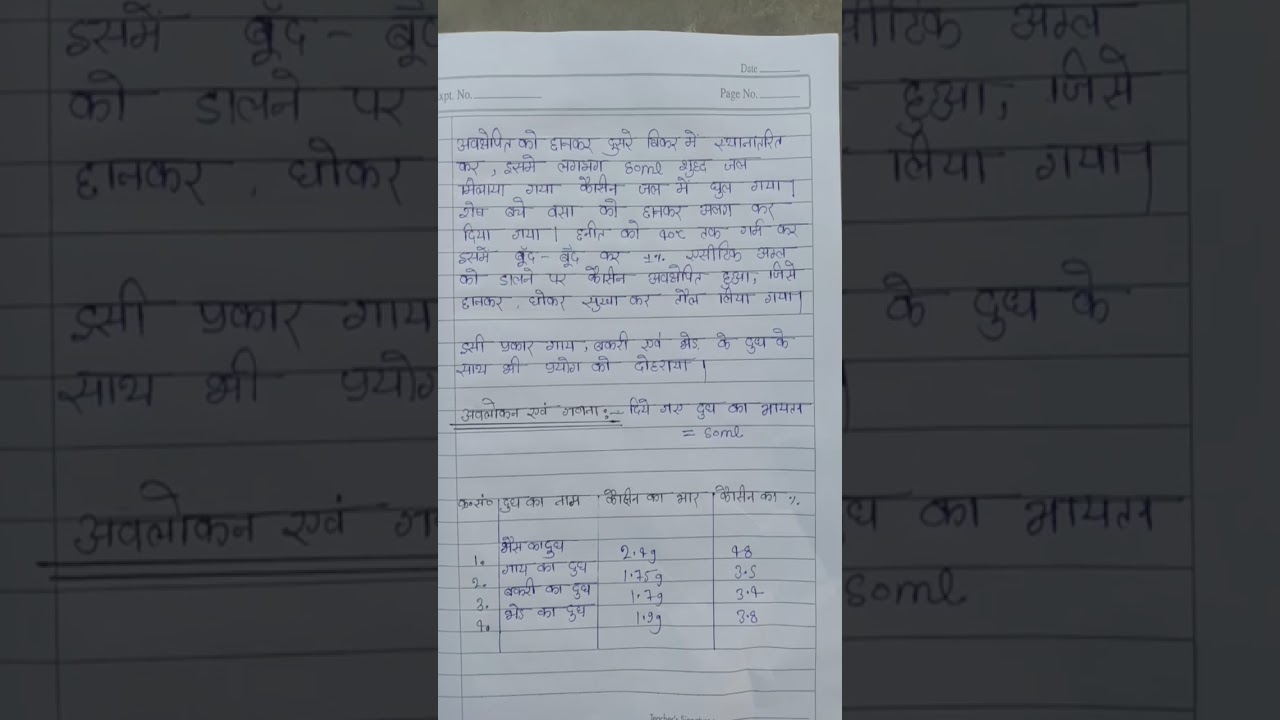 Date
Expt. No.
Page No.
अवक्षेपित को छानकर दुसरे बिकर में स्थानांतरित
कर, इसमे लगभग 50ml शुद्ध जल
मिलाया गया कैसीन जल में घुल गया।
शेष बचे वसा को छानकर अलग कर
दिया गया। छनीत को 40°C तक गर्म कर
इसमें बूँद-बूँद कर 1% एसीटिक अम्ल
को डालने पर कैसीन अवक्षेपित हुआ, जिसे
छानकर, धोकर सुखा कर तौल लिया गया।
इसी प्रकार गाय, बकरी एवं भेड़ के दुध के
साथ भी प्रयोग को दोहराया।
अवलोकन एवं गणना:- दिये गए दुध का आयतन
= 50ml
क्र०सं० दुध का नाम कैसीन का भार कैसीन का %
1. भैंस का दुध 2.4g 4.8
2. गाय का दुध 1.75g 3.5
3. बकरी का दुध 1.7g 3.4
4. भेड का दुध 1.9g 3.8